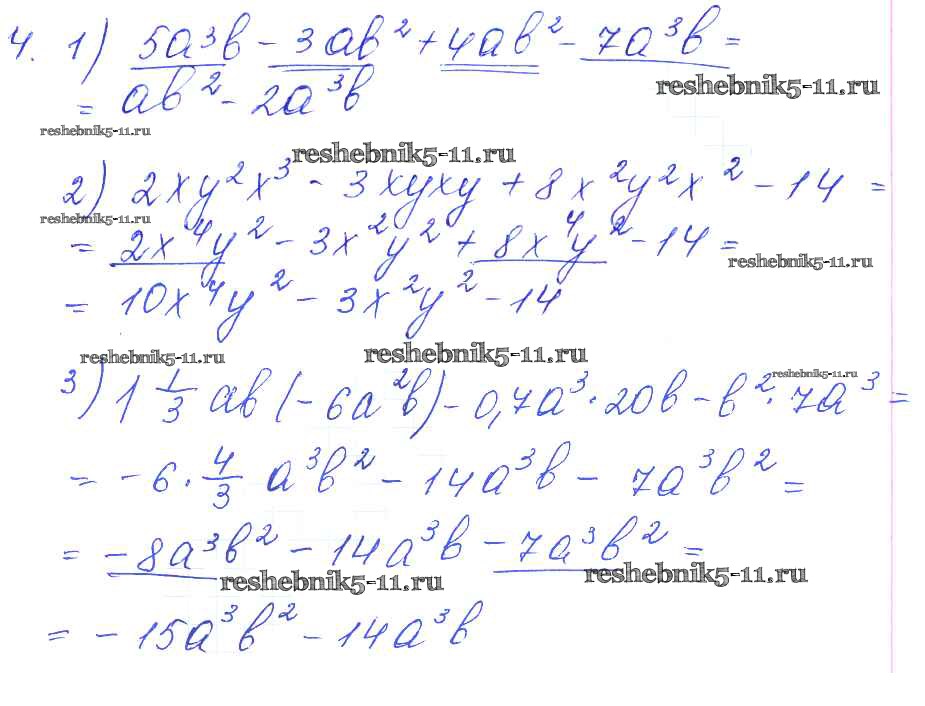 4. 1) 5a³b - 3ab² + 4ab² - 7a³b =
reshebnik5-11.ru
= ab² - 2a³b
reshebnik5-11.ru
reshebnik5-11.ru
2) 2xy²x³ - 3xyxy + 8x²y²x² - 14 =
reshebnik5-11.ru
= 2x⁴y² - 3x²y² + 8x⁴y² - 14 =
reshebnik5-11.ru
= 10x⁴y² - 3x²y² - 14
reshebnik5-11.ru
reshebnik5-11.ru
reshebnik5-11.ru
3) 1 1/3 ab (-6a²b) - 0,7a³ · 20b - b² · 7a³ =
= -6 · 4/3 a³b² - 14a³b - 7a³b² =
= -8a³b² - 14a³b - 7a³b² =
reshebnik5-11.ru
reshebnik5-11.ru
= -15a³b² - 14a³b